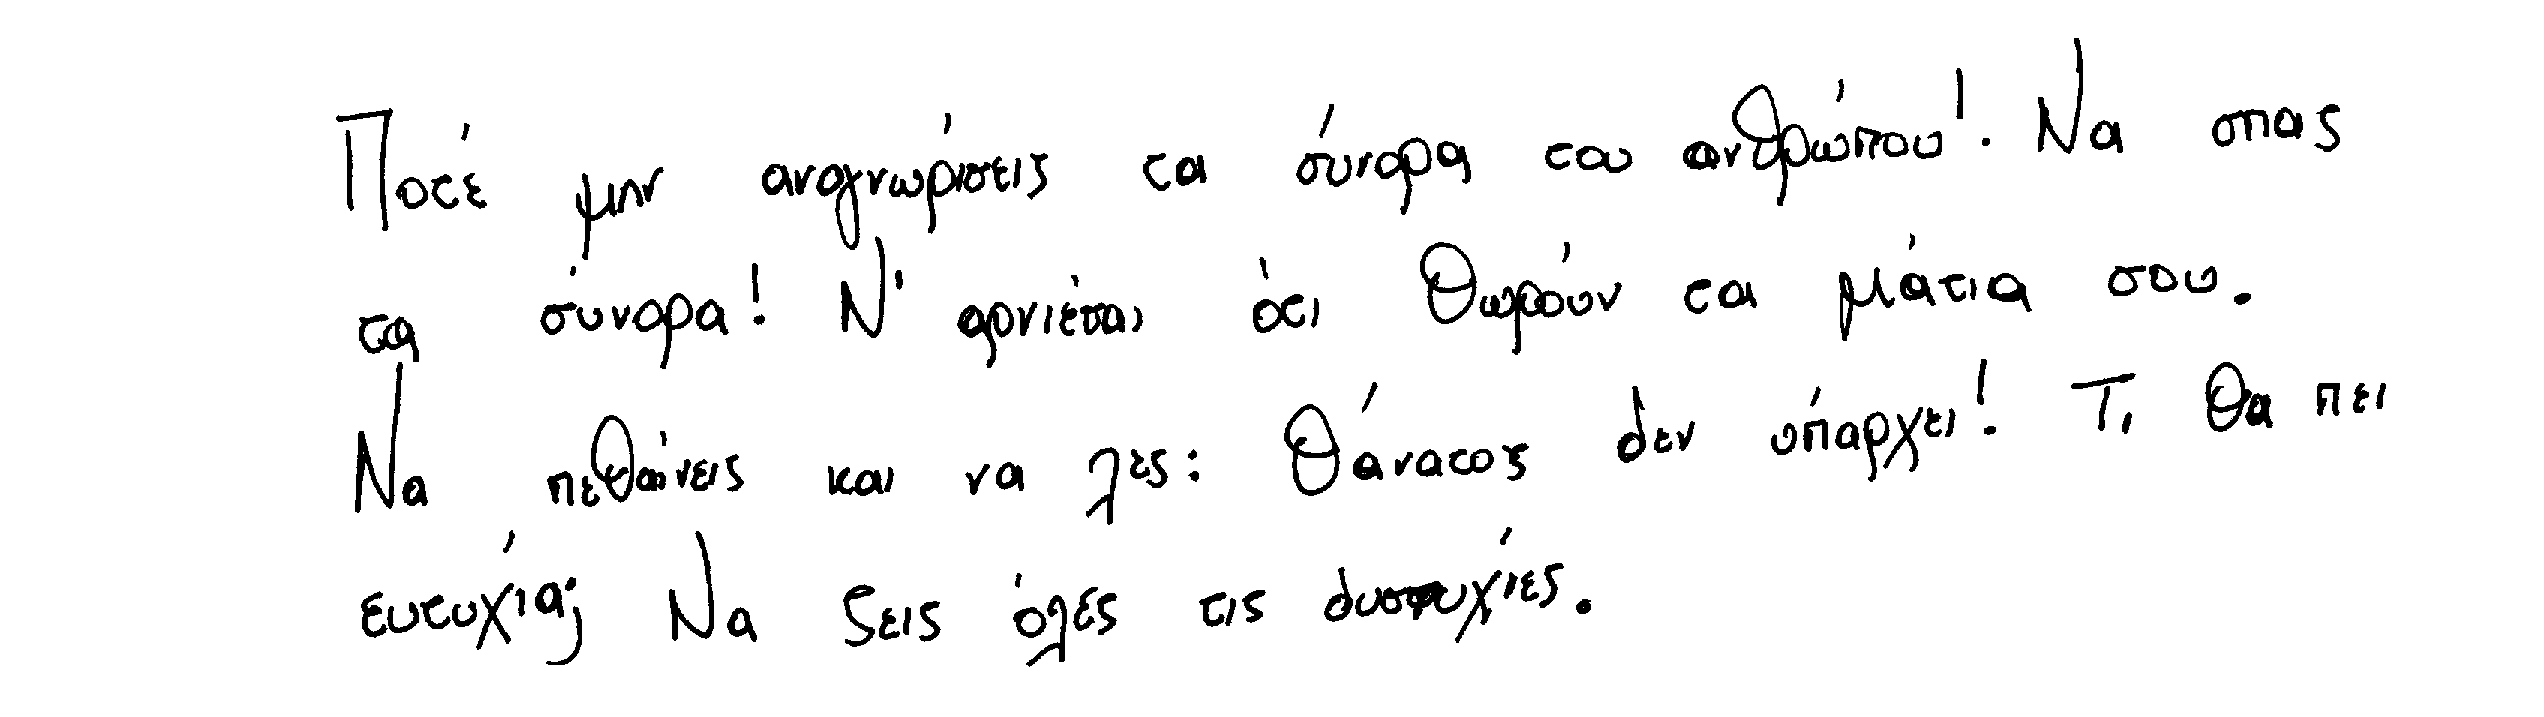 Ποτέ μην αναγνωρίσεις τα σύνορα του ανθρώπου! Να σπας
τα σύνορα! Ν' αρνιέσαι ότι θωρούν τα μάτια σου.
Να πεθαίνεις και να λες: Θάνατος δεν υπάρχει! Τι θα πει
ευτυχία; Να ζεις όλες τις δυστυχίες.